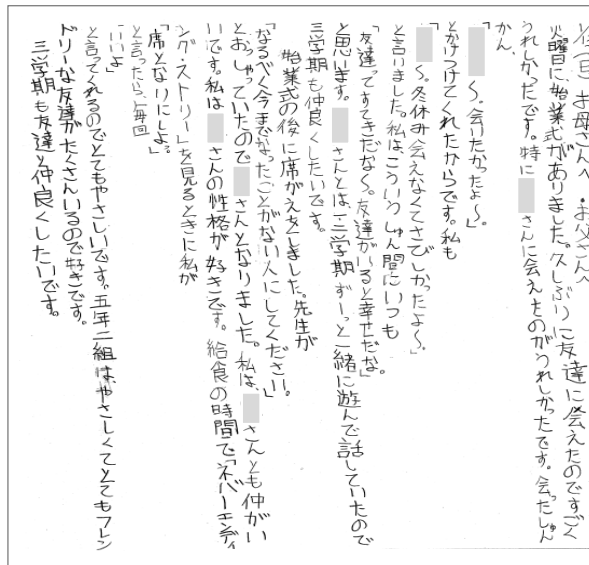 1/13(日)お母さんへ・お父さんへ
火曜日に始業式がありました。久しぶりに友達に会えたのですごく
うれしかったです。特に さんに会えたのがうれしかったです。会ったしゅん
かん、
「 〜。会いたかったよ〜。」
とかけつけてくれたからです。私も
「 〜。冬休み会えなくてさびしかったよ〜。」
と言いました。私は、こういうしゅん間にいつも
「友達ってすてきだな〜。友達がいると幸せだな。」
と思います。 さんとは、二学期ずーっと一緒に遊んで話していたので
三学期も仲良くしたいです。
始業式の後に席がえをしました。先生が
「なるべく今までなったことがない人にしてください!。」
とおっしゃっていたので さんとなりました。私は、 さんとも仲がい
いです。私は さんの性格が好きです。給食の時間で「ネバーエンディ
ング・ストーリー」を見るときに私が
「席となりにしよ。」
と言ったら、毎回
「いいよ」
と言ってくれるのでとてもやさしいです。五年二組は、やさしくてとてもフレン
ドリーな友達がたくさんいるので好きです。
三学期も友達と仲良くしたいです。